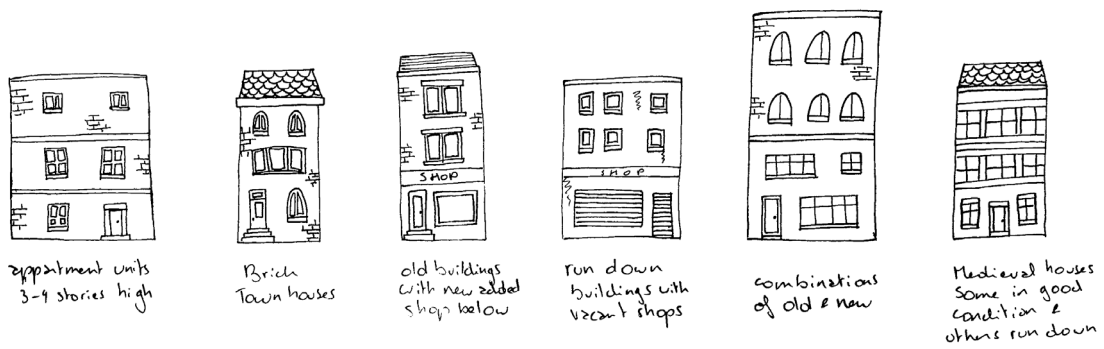 SHOP
SHOP
appartment units
3-4 stories high
Brick
Town houses
old buildings
with new added
shop below
run down
buildings with
vacant shops
combinations
of old & new
Medieval houses
Some in good
condition &
others run down